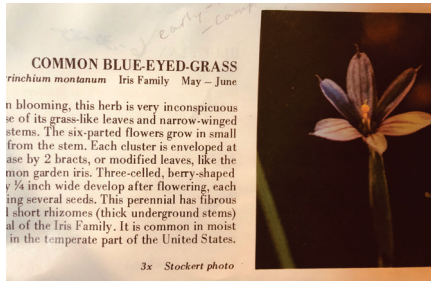 early-
camp
COMMON BLUE-EYED-GRASS
rinchium montanum Iris Family May – June
n blooming, this herb is very inconspicuous
se of its grass-like leaves and narrow-winged
stems. The six-parted flowers grow in small
from the stem. Each cluster is enveloped at
ase by 2 bracts, or modified leaves, like the
mon garden iris. Three-celled, berry-shaped
y ¼ inch wide develop after flowering, each
ing several seeds. This perennial has fibrous
l short rhizomes (thick underground stems)
al of the Iris Family. It is common in moist
in the temperate part of the United States.
3x Stockert photo